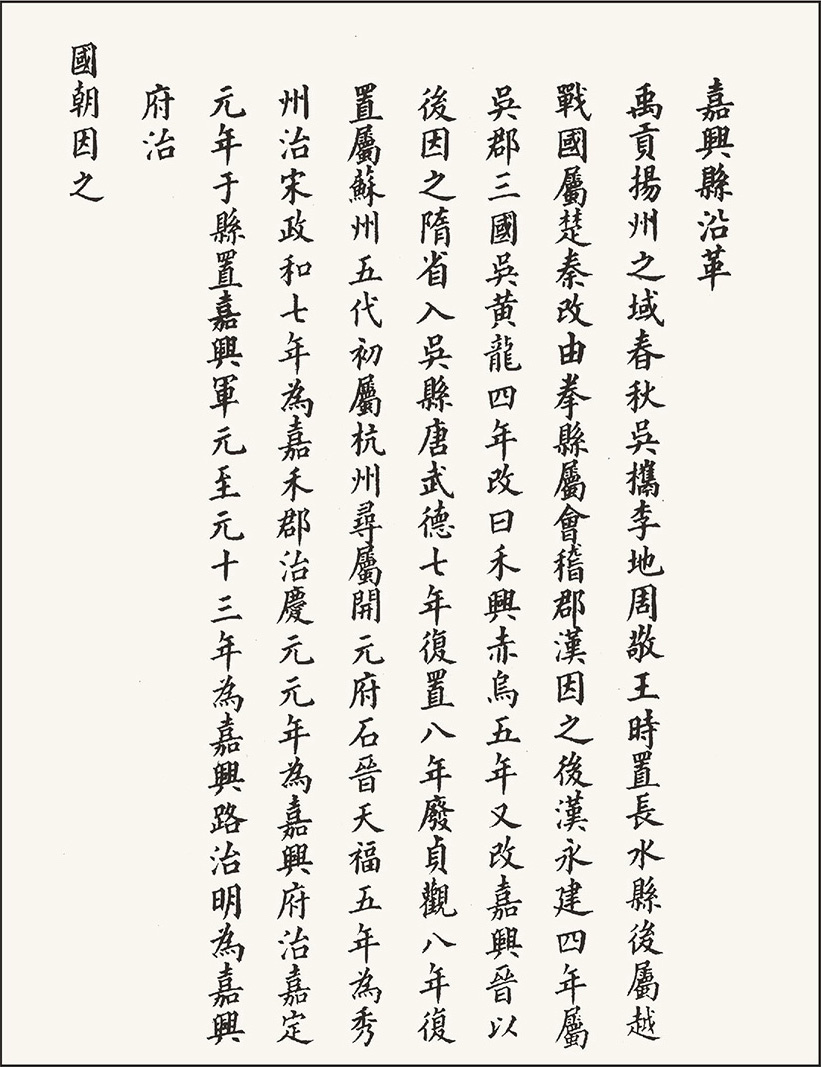 嘉興縣沿革
禹貢揚州之域春秋吳攜李地周敬王時置長水縣後屬越
戰國屬楚秦改由拳縣屬會稽郡漢因之後漢永建四年屬
吳郡三國吳黃龍四年改曰禾興赤烏五年又改嘉興晉以
後因之隋省入吳縣唐武德七年復置八年廢貞觀八年復
置屬蘇州五代初屬杭州尋屬開元府石晉天福五年為秀
州治宋政和七年為嘉禾郡治慶元元年為嘉興府治嘉定
元年于縣置嘉興軍元至元十三年為嘉興路治明為嘉興
府治
國朝因之